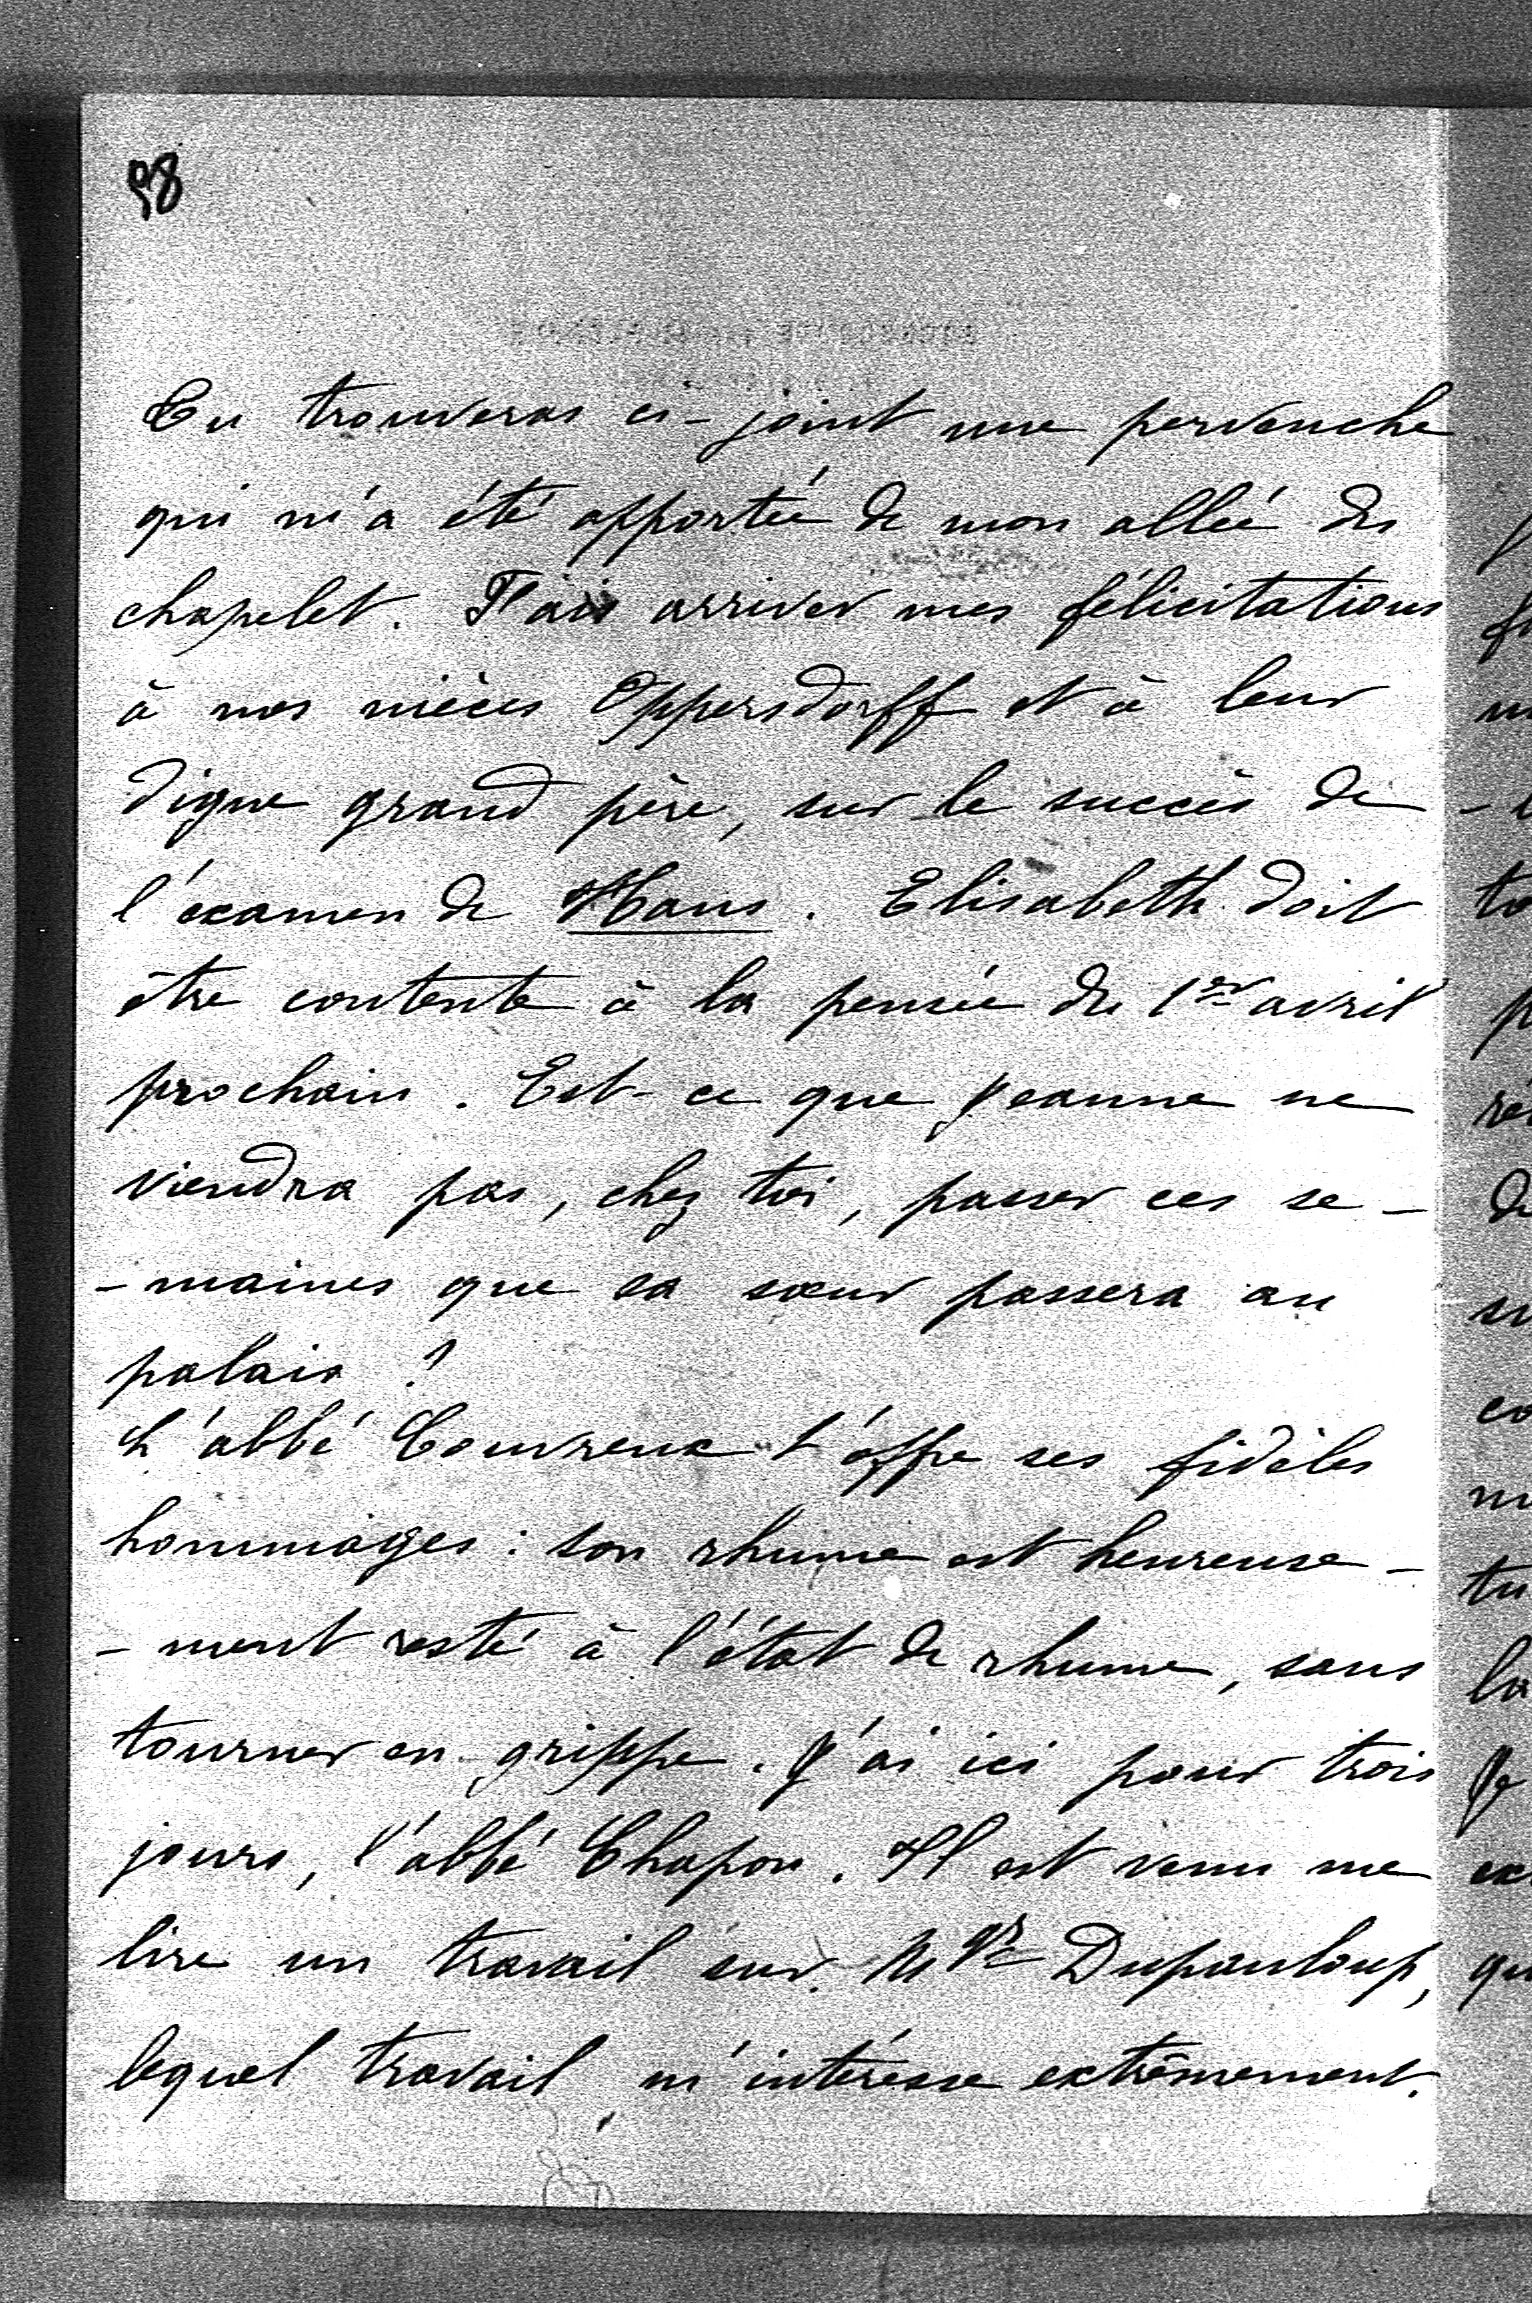 98
Tu trouveras ci-joint une pervenche
qui m'a été apportée de mon allée du
chapelet. Fais arriver mes félicitations
à nos nièces Oppersdorff et à leur
digne grand père, sur le succès de
l'examen de Hans. Elisabeth doit
être contente à la pensée du 1er avril
prochain. Est-ce que Jeanne ne
viendra pas, chez toi, passer ces se-
-maines que sa sœur passera au
palais ?
L'abbé Couvreux t'offre ses fidèles
hommages : son rhume est heureuse-
-ment resté à l'état de rhume, sans
tourner en grippe. J'ai ici pour trois
jours, l'abbé Chapon. Il est venu me
lire un travail sur Mgr Dupanloup,
lequel travail m'intéresse extrêmement.